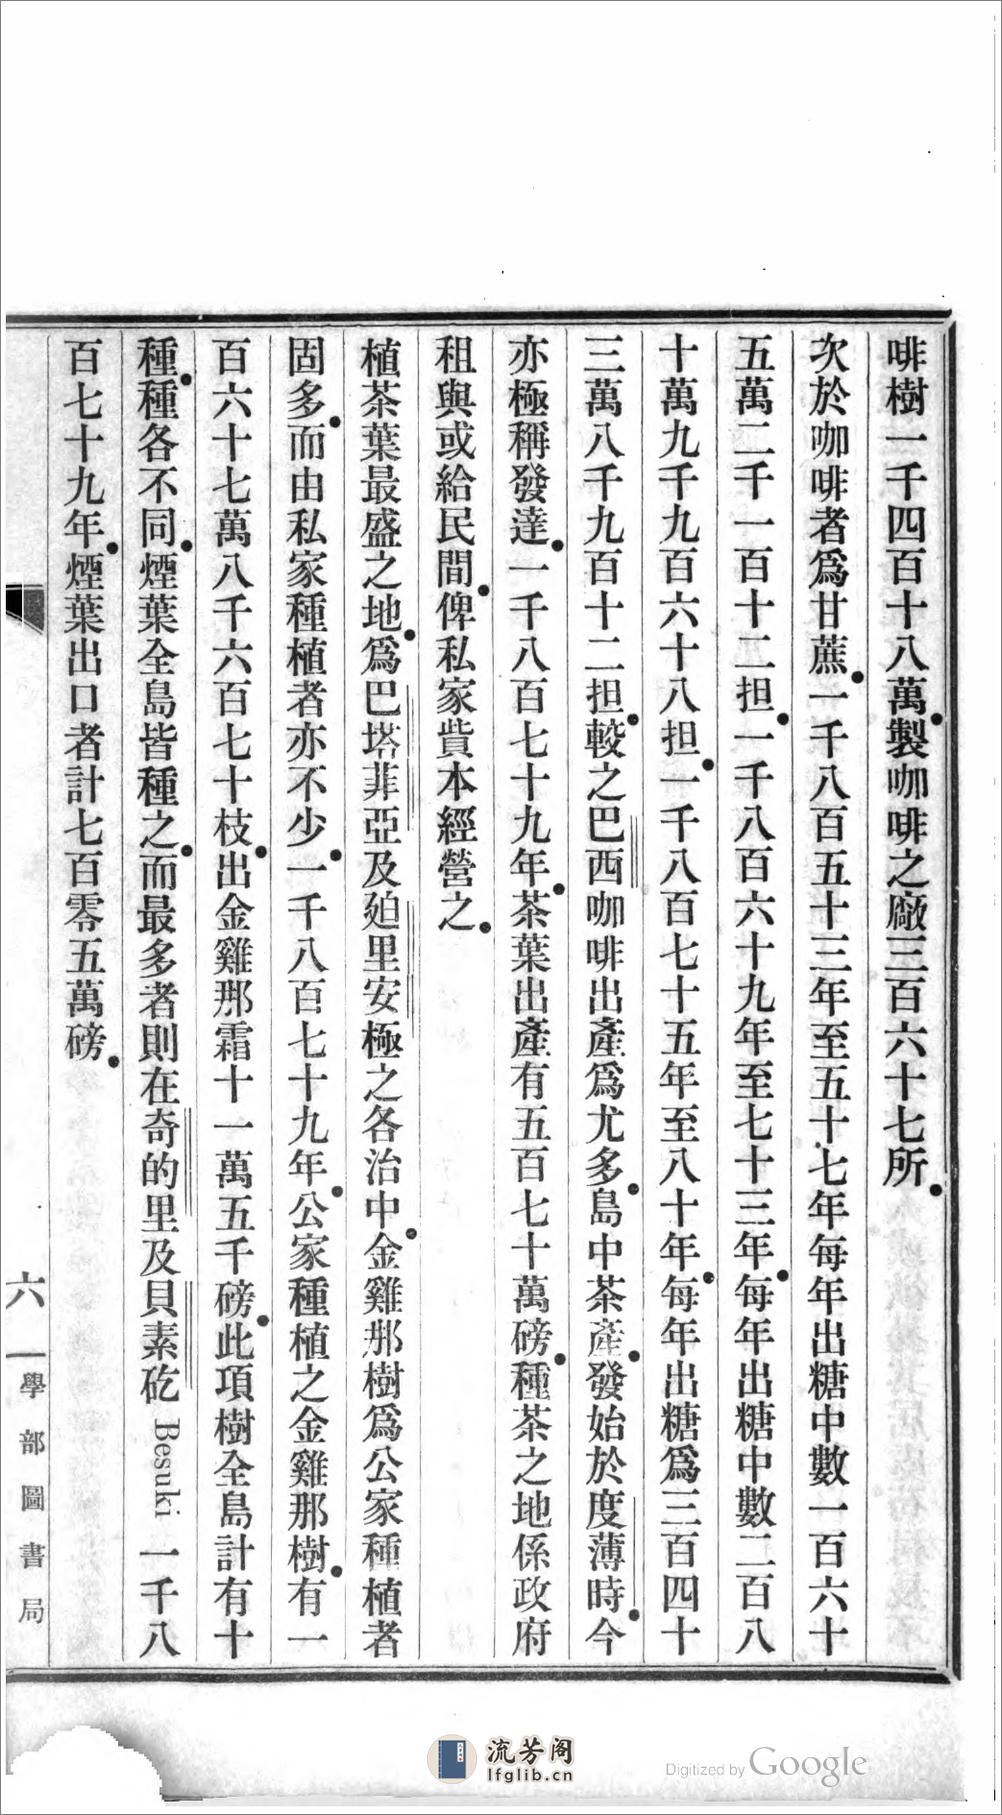 啡樹一千四百十八萬●製咖啡之廠三百六十七所●
次於咖啡者爲甘蔗●一千八百五十三年至五十七年每年出糖中數一百六十
五萬二千一百十二担●一千八百六十九年至七十三年●每年出糖中數二百八
十萬九千九百六十八担●一千八百七十五年至八十年●每年出糖爲三百四十
三萬八千九百十二担●較之巴西咖啡出產爲尤多●島中茶產●發始於度薄時●今
亦極稱發達●一千八百七十九年●茶葉出產有五百七十萬磅●種茶之地係政府
租與或給民間●俾私家貲本經營之●
植茶葉最盛之地●爲巴塔菲亞及廹里安極之各治中●金雞那樹爲公家種植者
固多●而由私家種植者亦不少●一千八百七十九年●公家種植之金雞那樹●有一
百六十七萬八千六百七十枝●出金雞那霜十一萬五千磅●此項樹全島計有十
種●種各不同●煙葉全島皆種之●而最多者則在奇的里及貝素矻 Besuki 一千八
百七十九年●煙葉出口者計七百零五萬磅●
六
學部圖書局
流芳阁
lfglib.cn
Digitized by Google